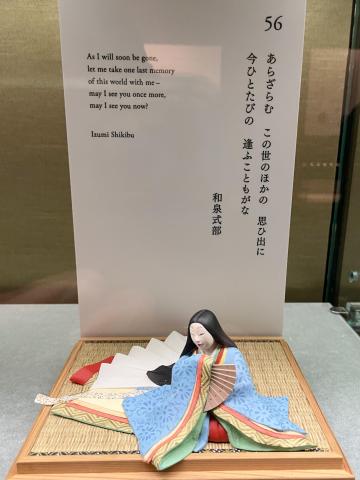 56
あらざらむ　この世のほかの　思ひ出に
今ひとたびの　逢ふこともがな
和泉式部
As I will soon be gone,
let me take one last memory
of this world with me –
may I see you once more,
may I see you now?
Izumi Shikibu